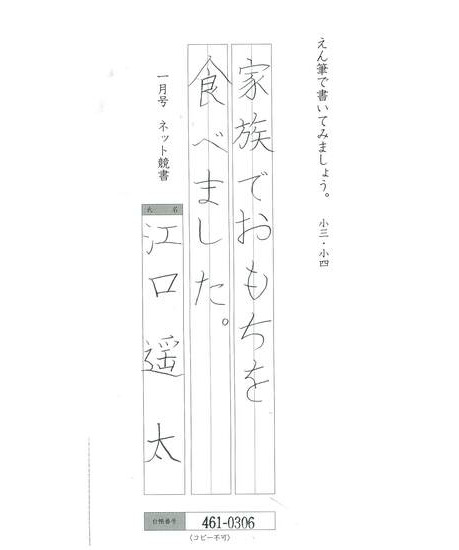 えん筆で書いてみましょう。 小三・小四
家族でおもちを
食べました。
一月号 ネット競書
氏名
江口遥太
台帳番号 461-0306
(コピー不可)